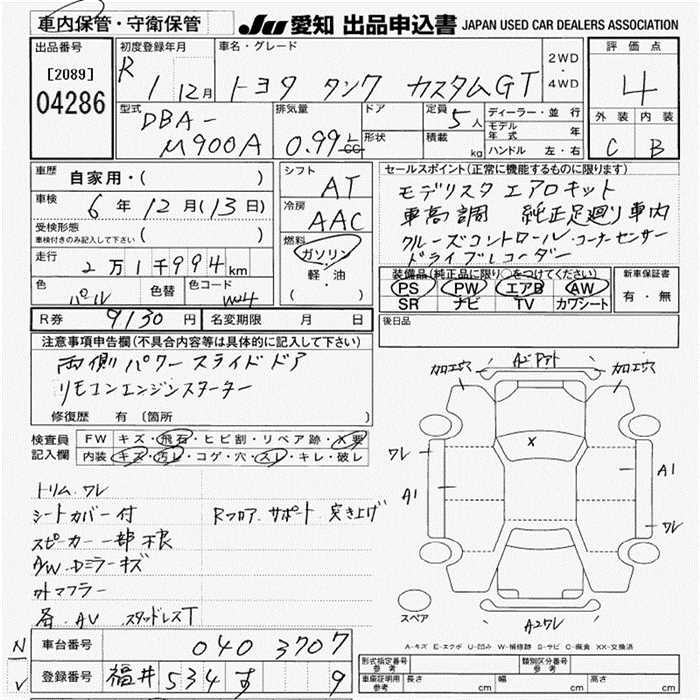 車内保管・守衛保管
JU 愛知 出品申込書 JAPAN USED CAR DEALERS ASSOCIATION
出品番号
[2089]
04286
初度登録年月
R 1 12月
車名・グレード
トヨタ タンク カスタムGT
2WD
・
4WD
評価点
4
外装 内装
C B
型式
DBA-
M900A
排気量
0.99 L
CC
ドア
形状
定員
5人
積載
kg
ディーラー・並行
モデル年式 年
ハンドル 左・右
車歴
自家用・( )
車検
6年12月(13日)
受検形態
車検付きのみ記入して下さい
( )
走行
2万1千994km
色
パール
色替
色コード
W24
シフト
AT
冷房
AAC
燃料
ガソリン
軽・油
( )
セールスポイント(正常に機能するものに限ります)
モデリスタ エアロキット
車高調 純正足廻り車内
クルーズコントロール・コーナーセンサー
ドライブレコーダー
装備品(純正品に限り○をつけてください)
PS PW エアB AW
SR ナビ TV カワシート
新車保証書
有・無
R券 9130円
名変期限 月 日
後日品
注意事項申告欄(不具合内容等は具体的に記入して下さい)
両側パワースライドドア
リモコンエンジンスターター
修復歴 有 〔箇所 〕
検査員
記入欄
FW キズ・飛石・ヒビ割・リペア跡・X要
内装 キズ・汚レ・コゲ・穴・スレ・キレ・破レ
トリム ワレ
シートカバー付
スピーカー一部不良
A/W・Dミラーキズ
外マフラー
各AV スタッドレスT
Rフロア サポート 突き上げ
加工穴
加工穴
X
ワレ
A1
A1
ワレ
A2ワレ
スペア
A-キズ E-エクボ U-凹み W-補修跡 S-サビ C-腐食 XX-交換済
N
V
車台番号
040 3707
登録番号
福井 534 す 9
形式指定番号
参考
類別区分番号
参考
車庫証明用
参考
長さ cm
幅 cm
高さ cm